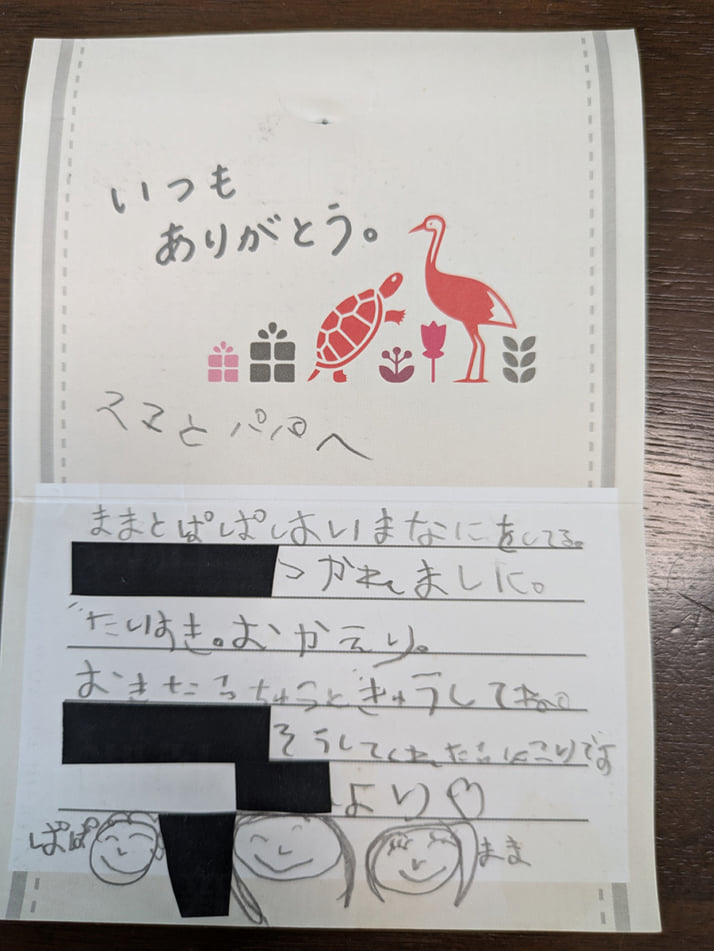 いつも
ありがとう。
ママとパパへ
ままとぱぱはいまなにをしてる。
つかれました。
だいすき。おかえり。
おきたらちゅうとぎゅうしてね。
そうしてくれたら
より♡
ぱぱ
まま